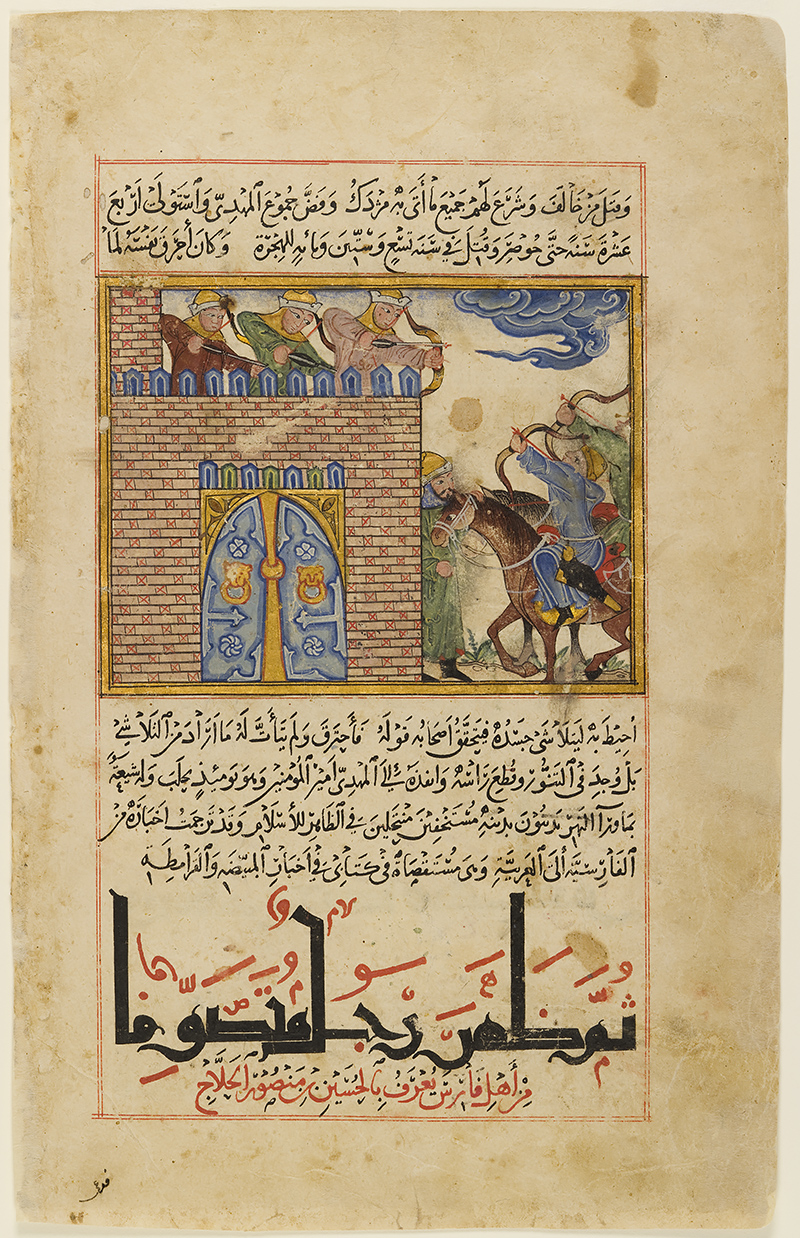 وَقَتَلَ مَنْ خَالَفَ وَشَرَعَ لَهُمْ جَمِيعَ مَا أَتَى بِهِ مَزْدَكُ وَفَضَّ جُمُوعَ المَهْدِيّ وَاسْتَوْلَى أَرْبَعَ
عَشْرَةَ سَنَةً حَتَّى حُوصِرَ وَقُتِلَ فِي سَنَةِ تِسْعٍ وَسِتِّينَ وَمِائَةٍ لِلْهِجْرَةِ وَكَانَ أَحْرَقَ نَفْسَهُ لَمَّا
أُحِيطَ بِهِ لِيَتَلَاشَى جَسَدُهُ فَيُحَقِّقَ أَصْحَابُهُ قَوْلَهُ فَأَحْتَرَقَ وَلَمْ يَتَأَتَّ لَهُ مَا أَرَادَ مِنَ التَّلَاشِي
بَلْ وُجِدَ فِي التَّنُّورِ وَقُطِعَ رَأْسُهُ وَانْفَذَهُ إِلَى المَهْدِيّ أَمِيرِ المُؤْمِنِينَ وَهُوَ يَوْمَئِذٍ بِحَلَبَ وَلَهُ شِيعَةٌ
بِمَا وَرَاءَ النَّهْرِ يَدِينُونَ بِدِينِهِ مُسْتَخْفِينَ مُنْتَحِلِينَ فِي الظَّاهِرِ لِلْإِسْلَامِ وَقَدْ تَرْجَمْتُ أَخْبَارَهُ مِنَ
الفَارِسِيَّةِ إِلَى العَرَبِيَّةِ وَهِيَ مُسْتَقْصَاةٌ فِي كِتَابِي فِي أَخْبَارِ المُبَيِّضَةِ وَالقَرَامِطَةِ
ثُمَّ ظَهَرَ رَجُلٌ مُتَصَوِّفٌ
مِنْ أَهْلِ فَارِسَ يُعْرَفُ بِالحُسَيْنِ بْنِ مَنْصُورٍ الحَلَّاجِ